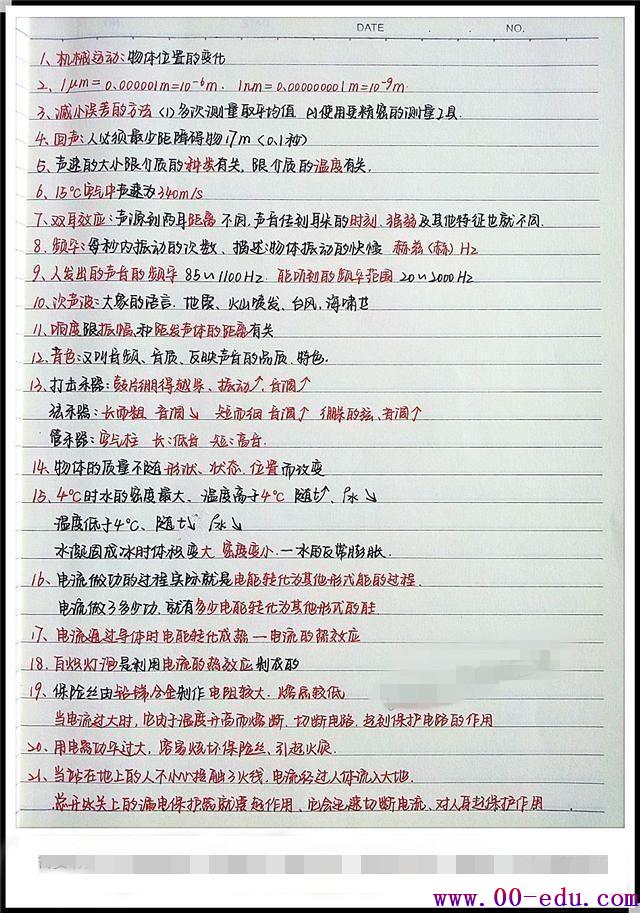 DATE . . NO.
1、机械运动:物体位置的变化
2、1μm=0.000001m=10⁻⁶m. 1nm=0.000000001m=10⁻⁹m.
3、减小误差的方法 (1)多次测量取平均值 (2)使用更精密的测量工具.
4、回声:人必须最少距障碍物17m (0.1秒)
5、声速的大小跟介质的种类有关,跟介质的温度有关.
6、15℃空气中声速为340m/s
7、双耳效应:声源到两耳距离不同,声音传到耳朵的时刻、强弱及其他特征也就不同.
8、频率:每秒内振动的次数、描述物体振动的快慢 赫兹(赫) Hz
9、人发出的声音的频率 85~1100Hz 能听到的频率范围 20~2000Hz
10、次声波:大象的语言.地震、火山喷发、台风,海啸
11、响度跟振幅、和距发声体的距离有关
12、音色:又叫音频、音质、反映声音的品质、特色.
13、打击乐器:鼓片绷得越紧、振动↑,音调↑
弦乐器:长而粗 音调↓ 短而细 音调↑ 绷紧的弦、音调↑
管乐器:空气柱 长:低音 短:高音.
14、物体的质量不随形状、状态、位置而改变
15、4℃时水的密度最大、温度高于4℃ 随t↑、ρ水↓
温度低于4℃、随t↓ ρ水↓
水凝固成冰时体积变大 密度变小.—水的反常膨胀.
16、电流做功的过程实际就是电能转化为其他形式能的过程.
电流做了多少功.就有多少电能转化为其他形式的能
17、电流通过导体时电能转化成热—电流的热效应
18.白炽灯泡是利用电流的热效应制成的
19、保险丝由铅锑合金制作 电阻较大.熔点较低
当电流过大时,它由于温度升高而熔断.切断电路.起到保护电路的作用
20、用电器功率过大,容易烧坏保险丝、引起火灾.
21、当站在地上的人不小心接触了火线,电流经过人体流入大地.
总开关上的漏电保护器就要起作用、它会迅速切断电流、对人身起保护作用
www.00-edu.com